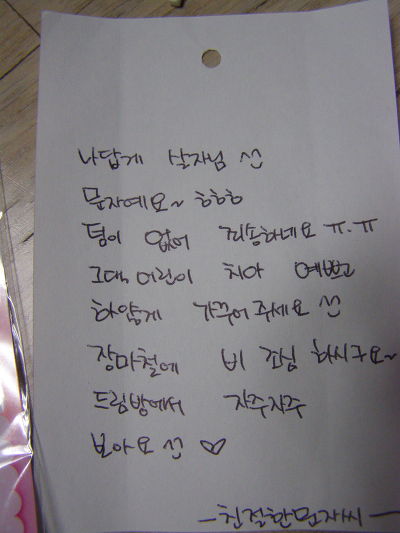 나답게 살자님 ^^
문자예요~ ㅎㅎㅎ
덤이 없어 죄송하네요 ㅠ.ㅠ
그대, 어린이 치아 예쁘고
하얗게 가꾸어 주세요 ^^
장마철에 비 조심 하시구요~
드림방에서 자주자주
보아요 ^^ ♡
- 친절한문자씨 -